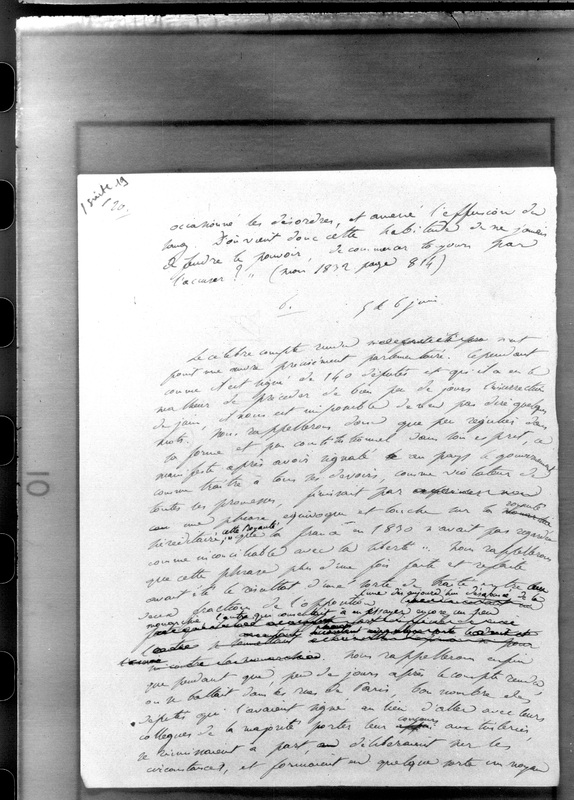 1 suite 19
20.
occasionné les désordres, et amené l'effusion du
sang. D'où vient donc cette habitude de ne jamais
défendre le pouvoir, de commencer toujours par
l'accuser ? " (mon 1832 page 814)
6. 5 & 6 juin
Le célèbre compte rendu
pour une œuvre précisément parlementaire. Cependant
comme il est signé de 140 députés et qu'il a eu le
malheur de précéder de bien peu de jours l'insurrection
de juin, il nous est impossible de ne pas dire quelques
mots. nous rappellerons donc que peu régulier dans
sa forme et peu constitutionnel dans son esprit, ce
manifeste après avoir signalé au pays le gouvernement
comme traître à tous ses devoirs, comme violateur de
toutes les promesses, finissait par
une phrase équivoque et louche sur la royauté
héréditaire, cette royauté, " que la france en 1830 n'avait pas regardée
comme inconciliable avec la liberté ". Nous rappellerons
que cette phrase plus d'une fois faite et refaite
avait été le résultat d'une sorte de traité entre
deux fractions de l'opposition, l'une dès aujourd'hui désabusée de la
monarchie l'autre qui consentait à en essayer encore un peu
pour
nous rappellerons enfin
que pendant que, peu de jours après le compte rendu
on se battait dans les rues de Paris, bon nombre des
députés qui l'avaient signé au lieu d'aller avec leurs
collègues de la majorité porter leur concours aux tuileries
se réunissaient à part délibéraient sur les
circonstances, et formaient en quelque sorte un noyau
10